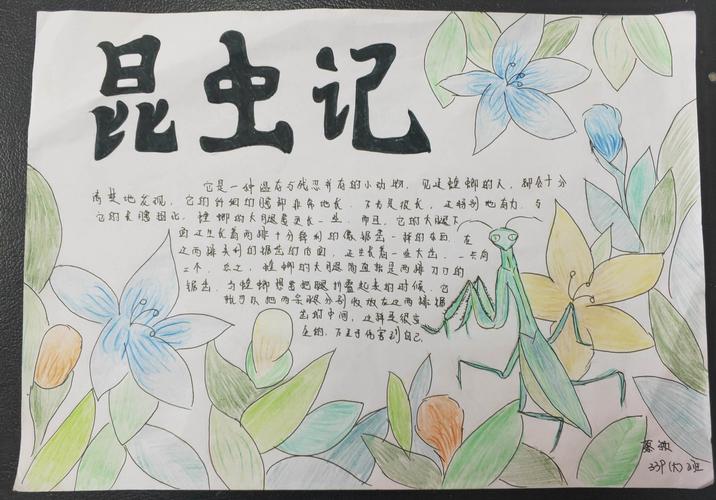 昆虫记
它是一种温存与优忍并有的小动物。见过螳螂的人，都会十分
清楚地发现，它的纤细的腰部非常地长。不光是很长，还特别地有力。与
它的长腰相比，螳螂的大腿要更长一些。而且，它的大腿下
面还生长着两排十分锋利的像锯齿一样的东西。在
这两排尖利的锯齿的后面，还生长着一些大齿，一共有
三个。总之，螳螂的大腿简直就是两排刀口的
锯齿。当螳螂想要把腿折叠起来的时候，它
就可以把两条腿分别收放在这两排锯
齿的中间，这样是很安
全的，不至于伤害到自己。
班